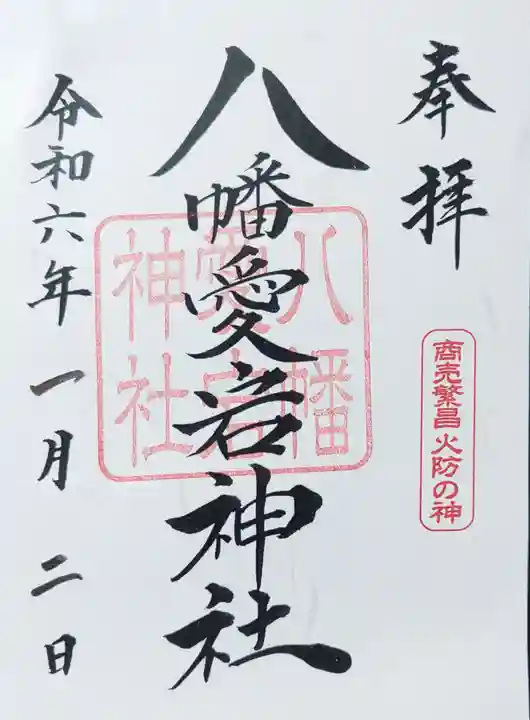 奉拝
商売繁昌 火防の神
八幡愛宕神社
八幡
愛宕
神社
令和六年 一月 二日